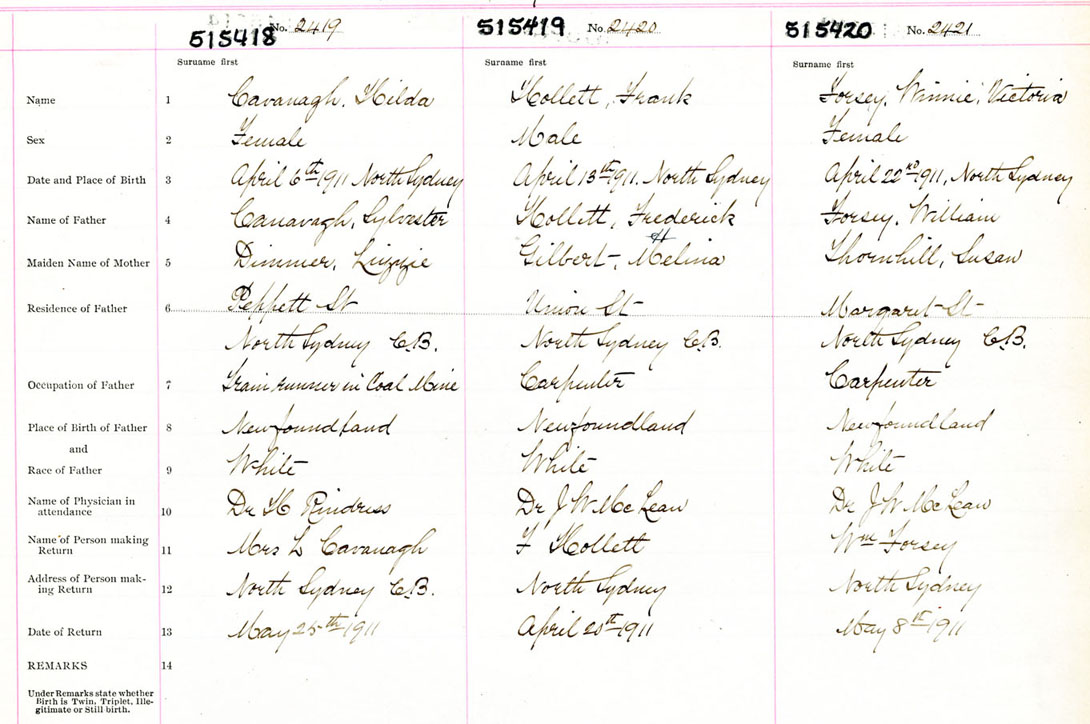 515418 No. 2419
515419 No. 2420
515420 No. 2421
Surname first Surname first Surname first
Name 1 Cavanagh, Hilda Hollett, Frank Forsey, Winnie, Victoria
Sex 2 Female Male Female
Date and Place of Birth 3 April 6th 1911 North Sydney April 13th 1911. North Sydney April 22nd 1911, North Sydney
Name of Father 4 Canavagh, Sylvester Hollett, Frederick Forsey, William
H
Maiden Name of Mother 5 Dimmer, Lizzie Gilbert, Melina Thornhill, Susan
Residence of Father 6 Peppett St Union St Margaret St
North Sydney C.B. North Sydney C.B. North Sydney C.B.
Occupation of Father 7 Train runner in Coal Mine Carpenter Carpenter
Place of Birth of Father 8 Newfoundland Newfoundland Newfoundland
and
Race of Father 9 White White White
Name of Physician in
attendance 10 Dr H Rindress Dr J W McLean Dr J W McLean
Name of Person making
Return 11 Mrs L Cavanagh F Hollett Wm Forsey
Address of Person mak-
ing Return 12 North Sydney C.B. North Sydney North Sydney
Date of Return 13 May 25th 1911 April 20th 1911 May 8th 1911
REMARKS 14
Under Remarks state whether
Birth is Twin, Triplet, Ille-
gitimate or Still birth.